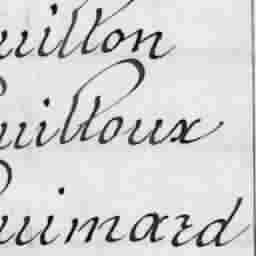 uillon
uilloux
uimard